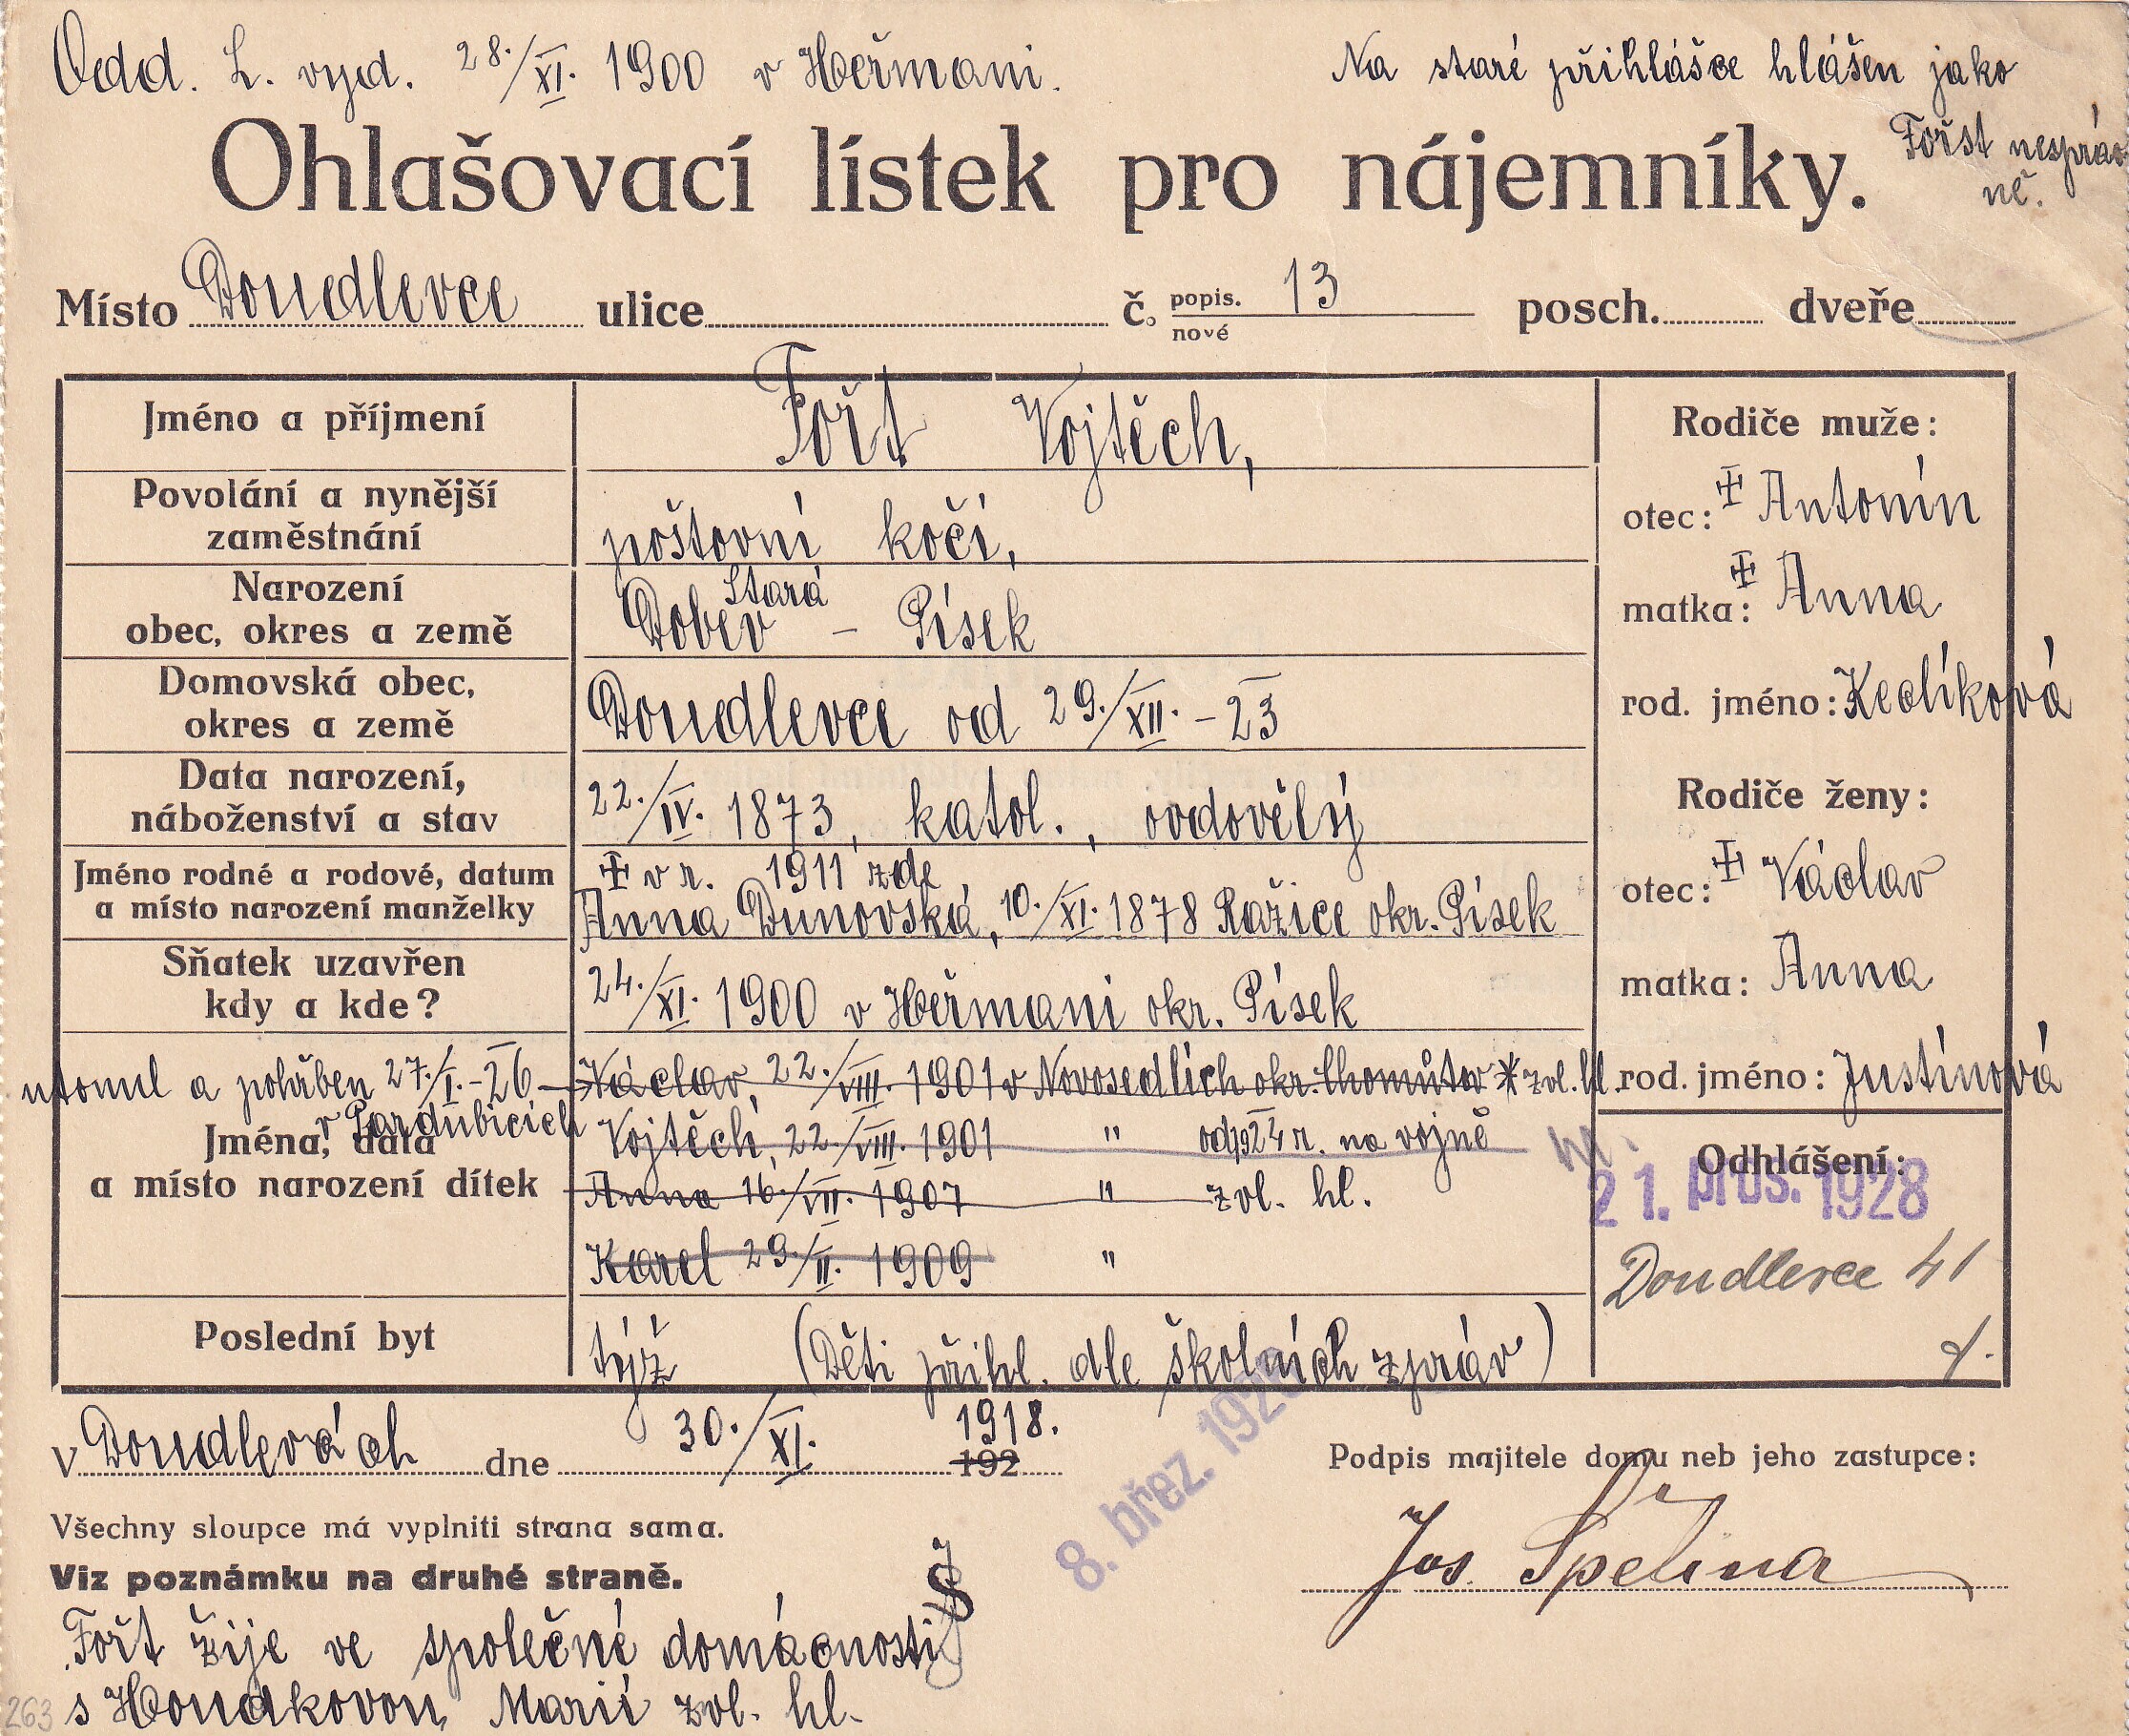 Odd. L. vyd. 28./XI. 1900 v Heřmani.
Na staré přihlášce hlášen jako
Fořst nespráv-
ně.
Ohlašovací lístek pro nájemníky.
Místo Doudlevce ulice č. popis. 13 posch. dveře
nové
Jméno a příjmení Fořt Vojtěch,
Povolání a nynější
zaměstnání poštovní kočí,
Narození
obec, okres a země Stará Dobev – Písek
Domovská obec,
okres a země Doudlevce od 29./XII. – 23
Data narození,
náboženství a stav 22./IV. 1873, katol., ovdovělý
Jméno rodné a rodové, datum ‡ v r. 1911 zde
a místo narození manželky Anna Dunovská, 10./XI. 1878 Ražice okr. Písek
Sňatek uzavřen
kdy a kde? 24./XI. 1900 v Heřmani okr. Písek
utonul a pohřben 27./I. – 26
v Pardubicích
Jména, data
a místo narození dítek
Václav, 22./VIII. 1901 v Novosedlích okr. Chomůtov * zvl. hl.
Vojtěch, 22./VIII. 1901 " od 1924 r. na vojně
Anna 16./VII. 1907 " zvl. hl.
Karel 29./II. 1909 "
Poslední byt týž (Děti přihl. dle školních zpráv)
Rodiče muže:
otec: ‡ Antonín
matka: ‡ Anna
rod. jméno: Keclíková
Rodiče ženy:
otec: ‡ Václav
matka: Anna
rod. jméno: Justinová
Odhlášení:
21. pros. 1928
Doudlevce 41
V Doudlevcích dne 30./XI. 1918.
192
8. břez. 192
Podpis majitele domu neb jeho zastupce:
Jos. Špelina
Všechny sloupce má vyplniti strana sama.
Viz poznámku na druhé straně.
Fořt žije ve společné domácnosti
s Houdkovou Marií zvl. hl.
263